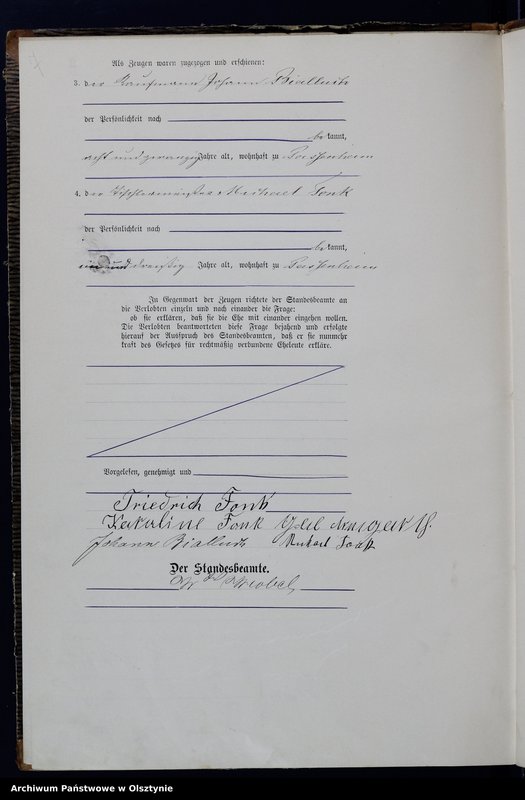 Als Zeugen waren zugezogen und erschienen:
3. der Kaufmann Johann Biallewitz
der Persönlichkeit nach
be kannt,
acht und zwanzig Jahre alt, wohnhaft zu Passenheim
4. der Tischlermeister Michael Fonk
der Persönlichkeit nach
be kannt,
ein und dreißig Jahre alt, wohnhaft zu Passenheim
In Gegenwart der Zeugen richtete der Standesbeamte an
die Verlobten einzeln und nach einander die Frage:
ob sie erklären, daß sie die Ehe mit einander eingehen wollen.
Die Verlobten beantworteten diese Frage bejahend und erfolgte
hierauf der Ausspruch des Standesbeamten, daß er sie nunmehr
kraft des Gesetzes für rechtmäßig verbundene Eheleute erkläre.
Vorgelesen, genehmigt und
Friedrich Fonk
Karoline Fonk
Johann
Der Standesbeamte.
Archiwum Państwowe w Olsztynie